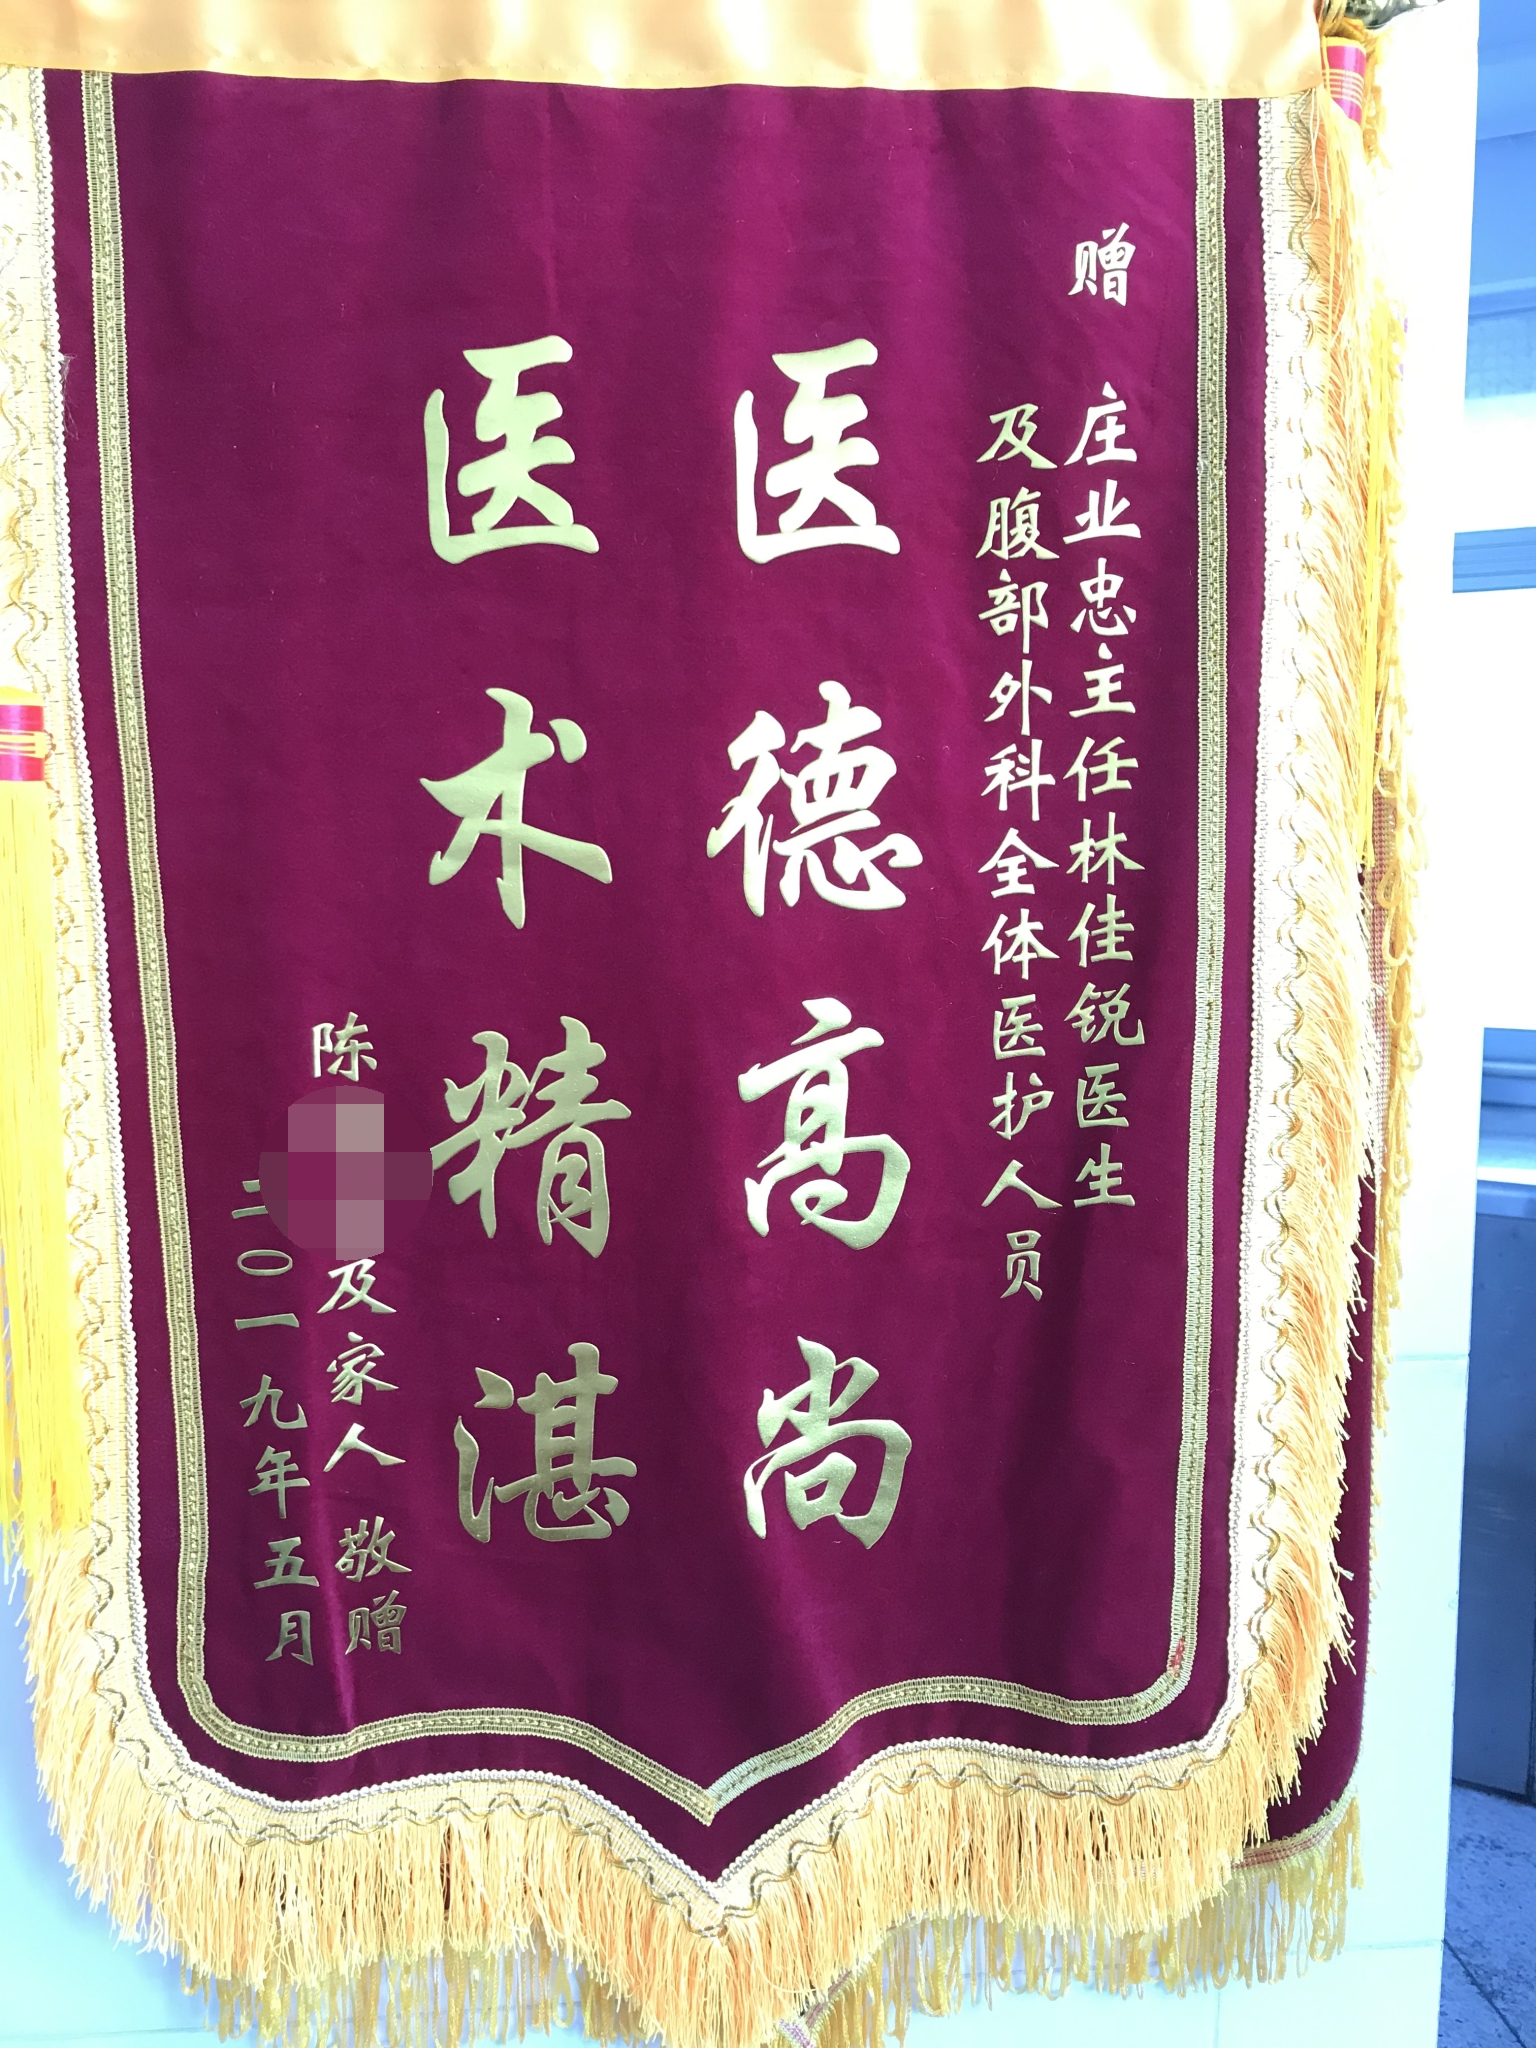 赠 庄业忠主任林佳锐医生
及腹部外科全体医护人员
医德高尚
医术精湛
陈 及家人 敬赠
二〇一九年五月